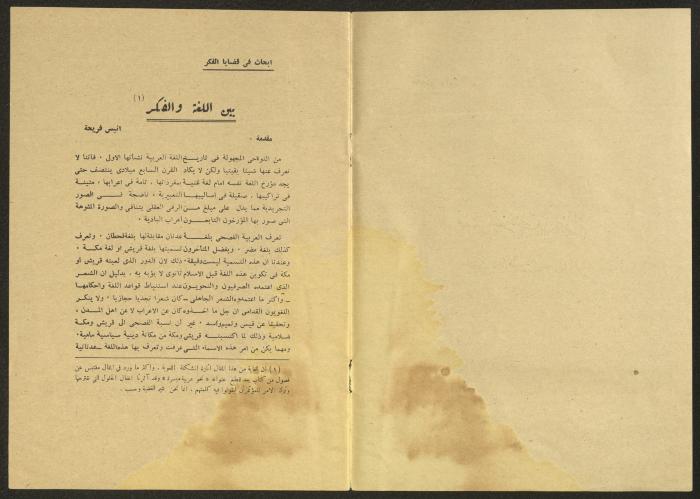 ابحاث في قضايا الفكر
بين اللغة والفكر (١)
انيس فريحة
مقدمة .
من النواحي المجهولة في تاريخ اللغة العربية نشأتها الاولى . فاننا لا
نعرف عنها شيئا يقينيا ولكن لا يكاد القرن السابع ميلادي ينتصف حتى
يجد مؤرخ اللغة نفسه امام لغة غنية بمفرداتها ، تامة في اعرابها ، متينة
في تراكيبها ، صقيلة في اساليبها التعبيرية ، ناضجة في الصور
التجريدية مما يدل على مبلغ من الرقي العقلي يتنافى والصورة المشوهة
التي صور بها المؤرخون التابعون اعراب البادية .
تعرف العربية الفصحى بلغة عدنان مقابلتها بلغة قحطان ، وتعرف
كذلك بلغة مضر . ويفضل المتأخرون تسميتها بلغة قريش او لغة مكة .
وعندنا ان هذه التسمية ليست دقيقة . ذلك لان الدور الذي لعبته قريش او
مكة في تكوين هذه اللغة قبل الاسلام ثانوي لا يؤبه به . بدليل ان الشعر
الذي اعتمده الصرفيون والنحويون عند استنباط قواعد اللغة واحكامها
ـ واكثر ما اعتمدوه الشعر الجاهلي ـ كان شعرا نجديا حجازيا . ولا ينكر
اللغويون القدامى ان جل ما اخذوه كان عن الاعراب لا عن اهل المدن ،
وتحقيقا عن قيس وتميم واسد . غير أن نسبة الفصحى الى قريش ومكة
اسلامية وذلك لما اكتسبته قريش ومكة من مكانة دينية سياسية سامية .
ومهما يكن من امر هذه الاسماء التي عرفت وتعرف بها هذه اللغة ـ عدنانية
(١) ان الغاية من هذا المقال اثارة المشكلة اللغوية . واكثر ما ورد في المقال مقتبس عن
فصول من كتاب عنوانه « نحو عربية ميسرة » وقد آثرنا اغفال الحلول التي نقترحها
وترك الامر للمؤتمرين ليقولوا فيه كلمتهم . انما نحن نثير القضية وحسب .